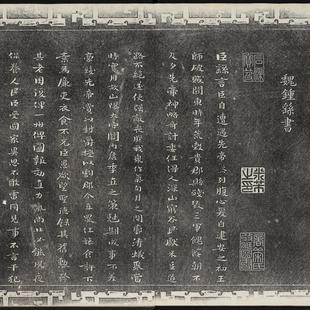 魏鍾繇書
臣繇言臣自遭遇先帝忝列腹心爰自建安之初王
師破賊關東時年荒穀貴郡縣殘毀三軍餽饟朝不
及夕先帝神略奇計委任得人深山窮谷民獻米豆道
路不絕遂使强敵喪膽我衆作氣旬月之間廓清蟻聚當
時實用故山陽太守關內侯季直之策剋期成事不差
豪髮先帝賞以封爵授以劇郡今直罷任旅食許下
素為廉吏衣食不充臣愚欲望聖德錄其舊勳矜
其老困復俾一州俾圖報效直力氣尚壯必能夙夜
保養人民臣受國家異恩不敢雷同見事不言干犯